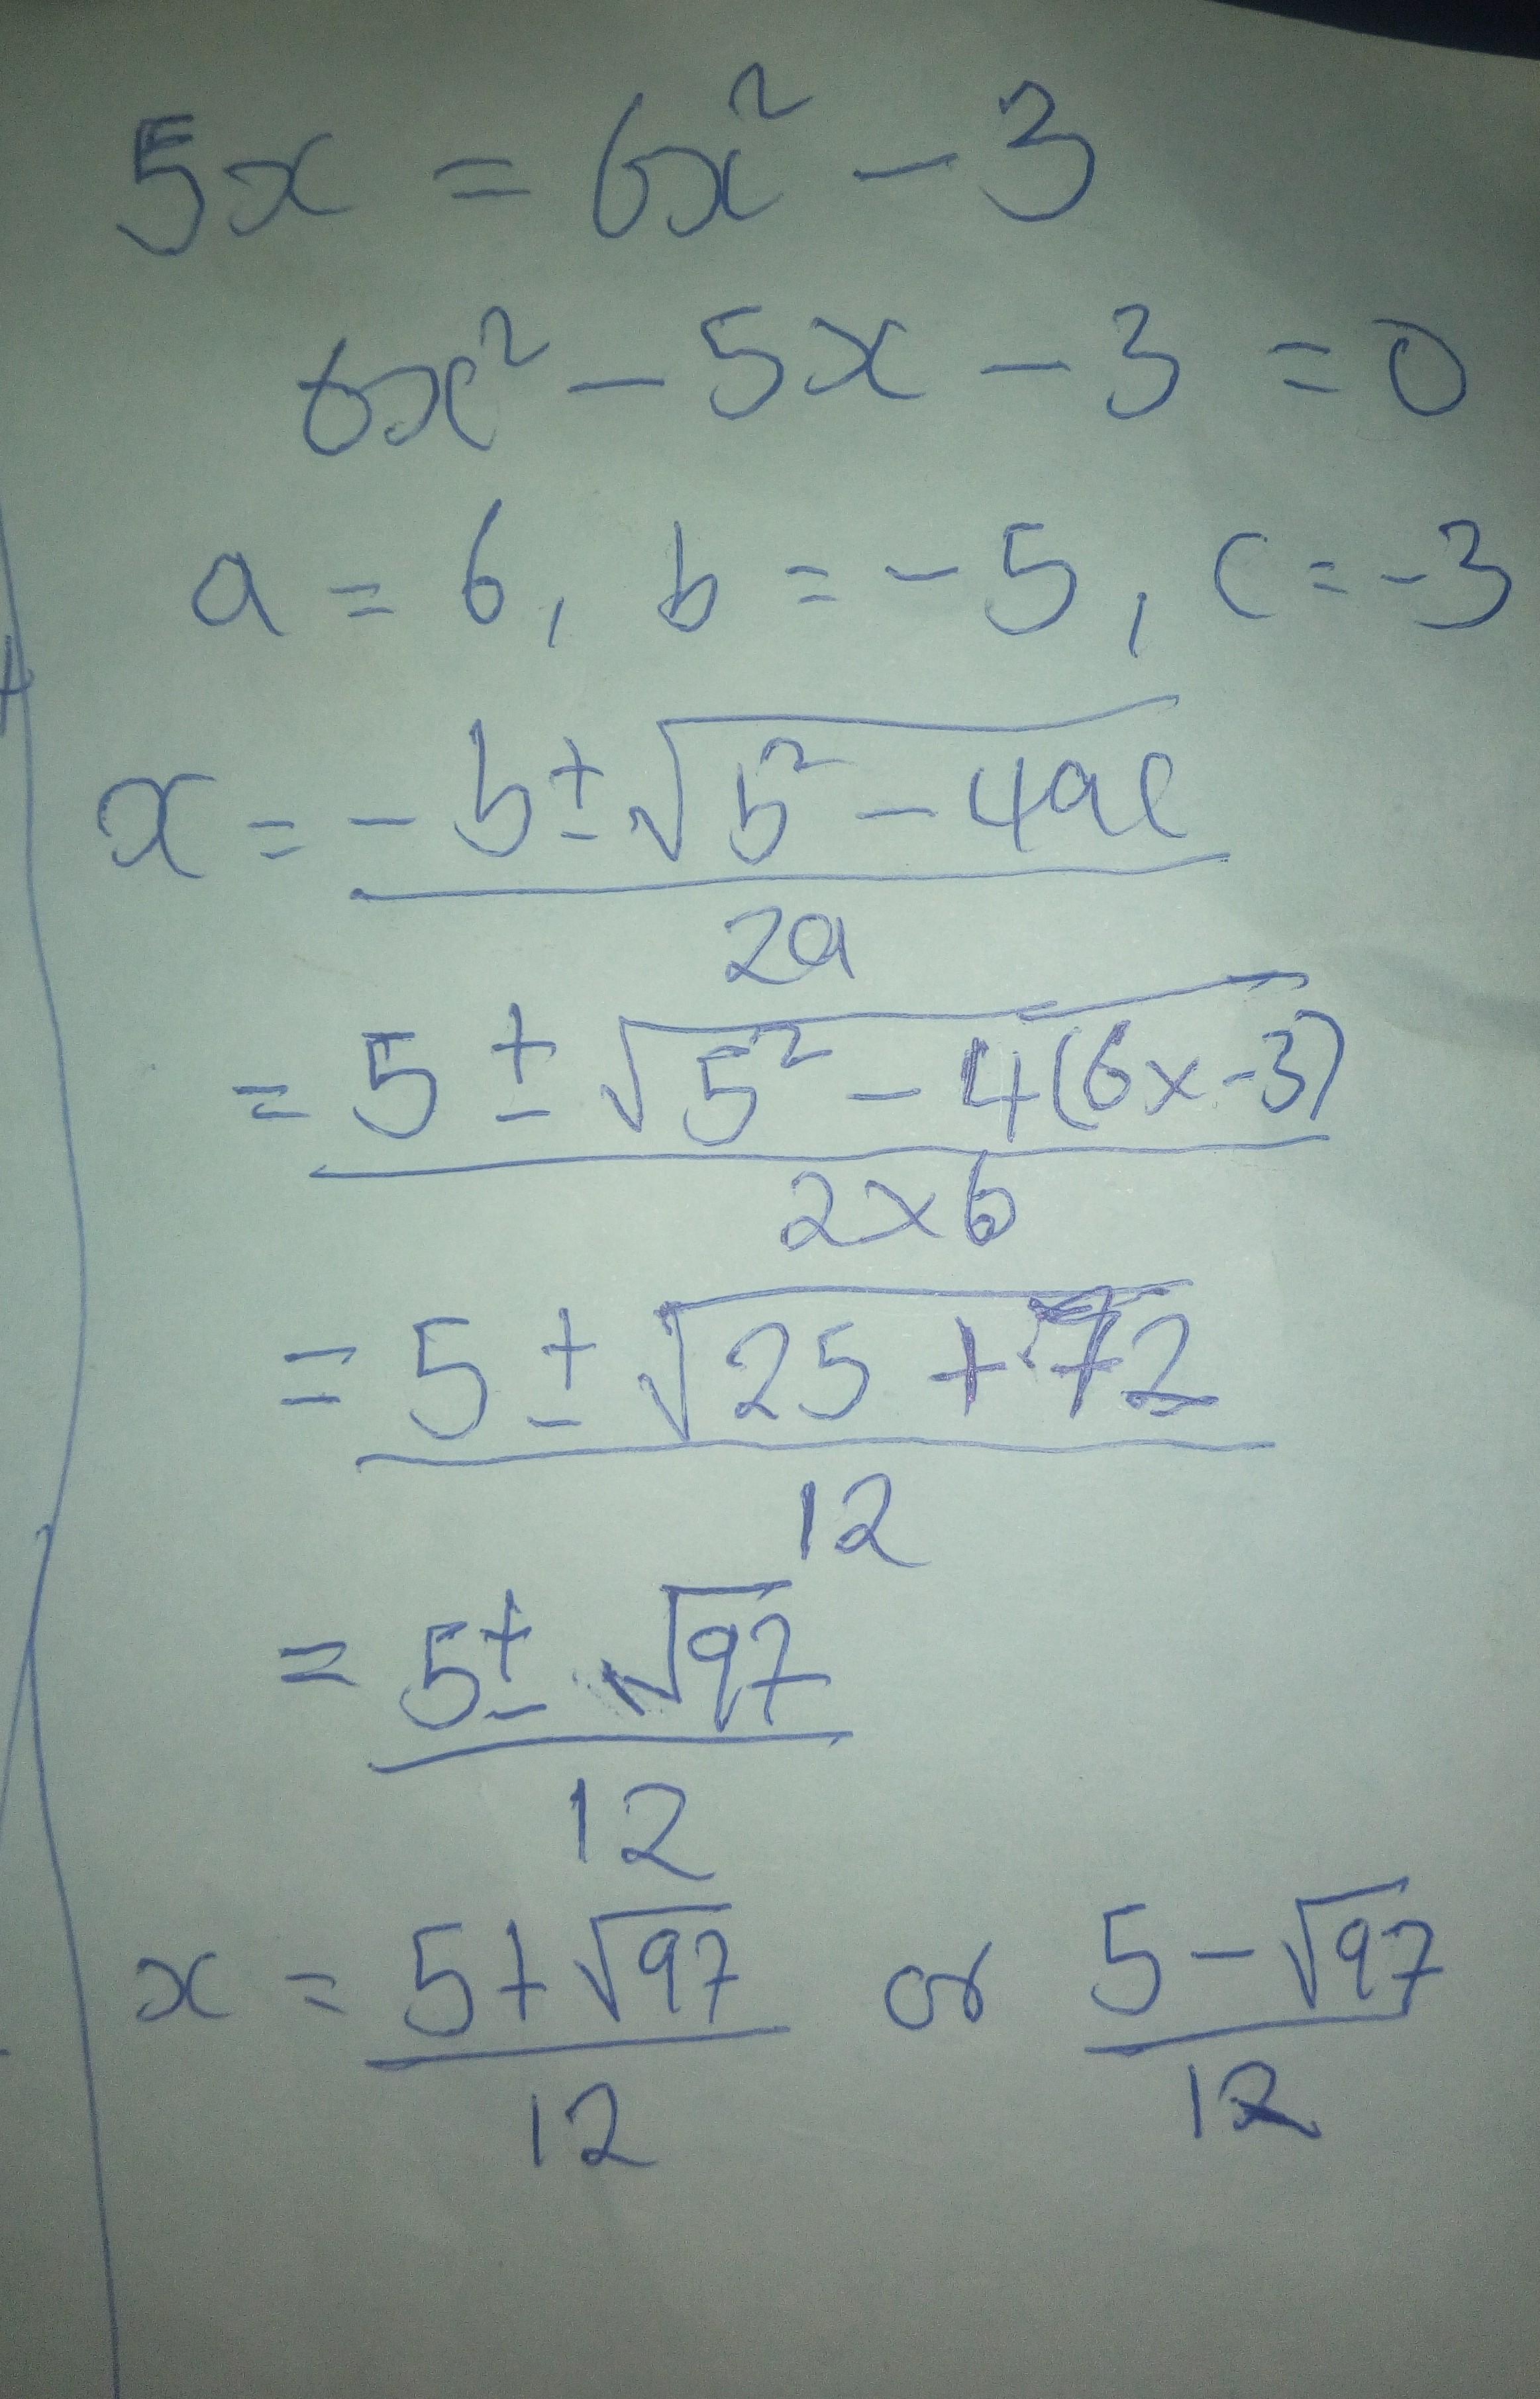 5x = 6x² - 3
6x² - 5x - 3 = 0
a = 6, b = -5, c = -3
x = -b ± √b² - 4ac
2a
= 5 ± √5² - 4(6x-3)
2x6
= 5 ± √25 + 72
12
= 5 ± √97
12
x = 5+√97 or 5-√97
12 12